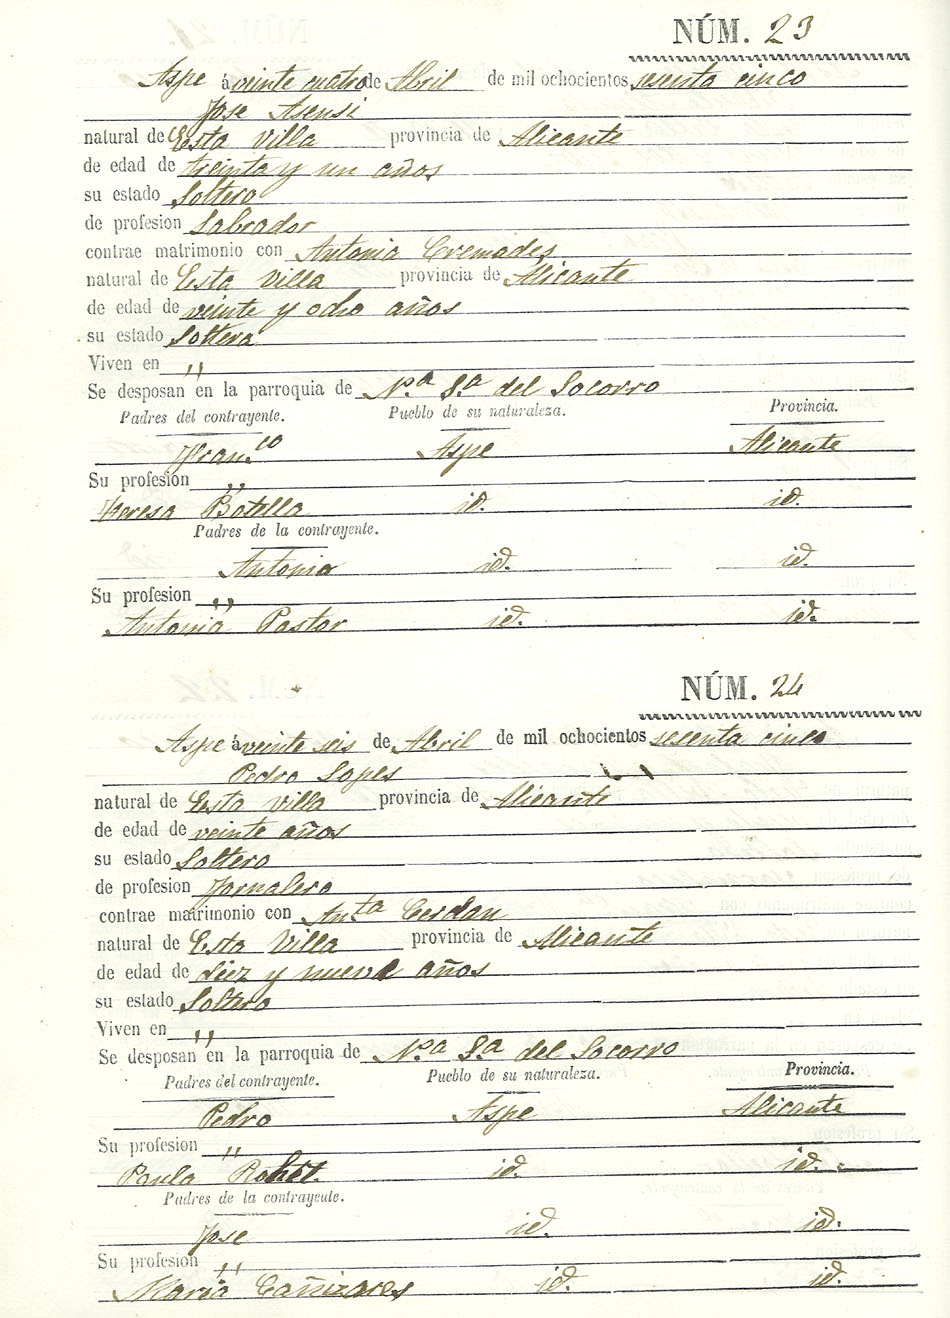 NÚM. 23
Aspe á veinte cuatro de Abril de mil ochocientos sesenta cinco
Jose Asensi
natural de Esta Villa provincia de Alicante
de edad de treinta y un años
su estado Soltero
de profesion Labrador
contrae matrimonio con Antonia Cremades
natural de Esta Villa provincia de Alicante
de edad de veinte y ocho años
su estado Soltera
Viven en ,,
Se desposan en la parroquia de Nª Sª del Socorro
Padres del contrayente. Pueblo de su naturaleza. Provincia.
Franco Aspe Alicante
Su profesion ,,
Teresa Botella id. id.
Padres de la contrayente.
Antonio id. id.
Su profesion ,,
Antonia Pastor id. id.
NÚM. 24
Aspe á veinte seis de Abril de mil ochocientos sesenta cinco
Pedro Lopes
natural de Esta villa provincia de Alicante
de edad de veinte años
su estado Soltero
de profesion Jornalero
contrae matrimonio con Anta Cerdan
natural de Esta Villa provincia de Alicante
de edad de diez y nueve años
su estado Soltera
Viven en ,,
Se desposan en la parroquia de Nª Sª del Socorro
Padres del contrayente. Pueblo de su naturaleza. Provincia.
Pedro Aspe Alicante
Su profesion ,,
Paula id. id.
Padres de la contrayente.
Jose id. id.
Su profesion ,,
Maria Cañizares id. id.